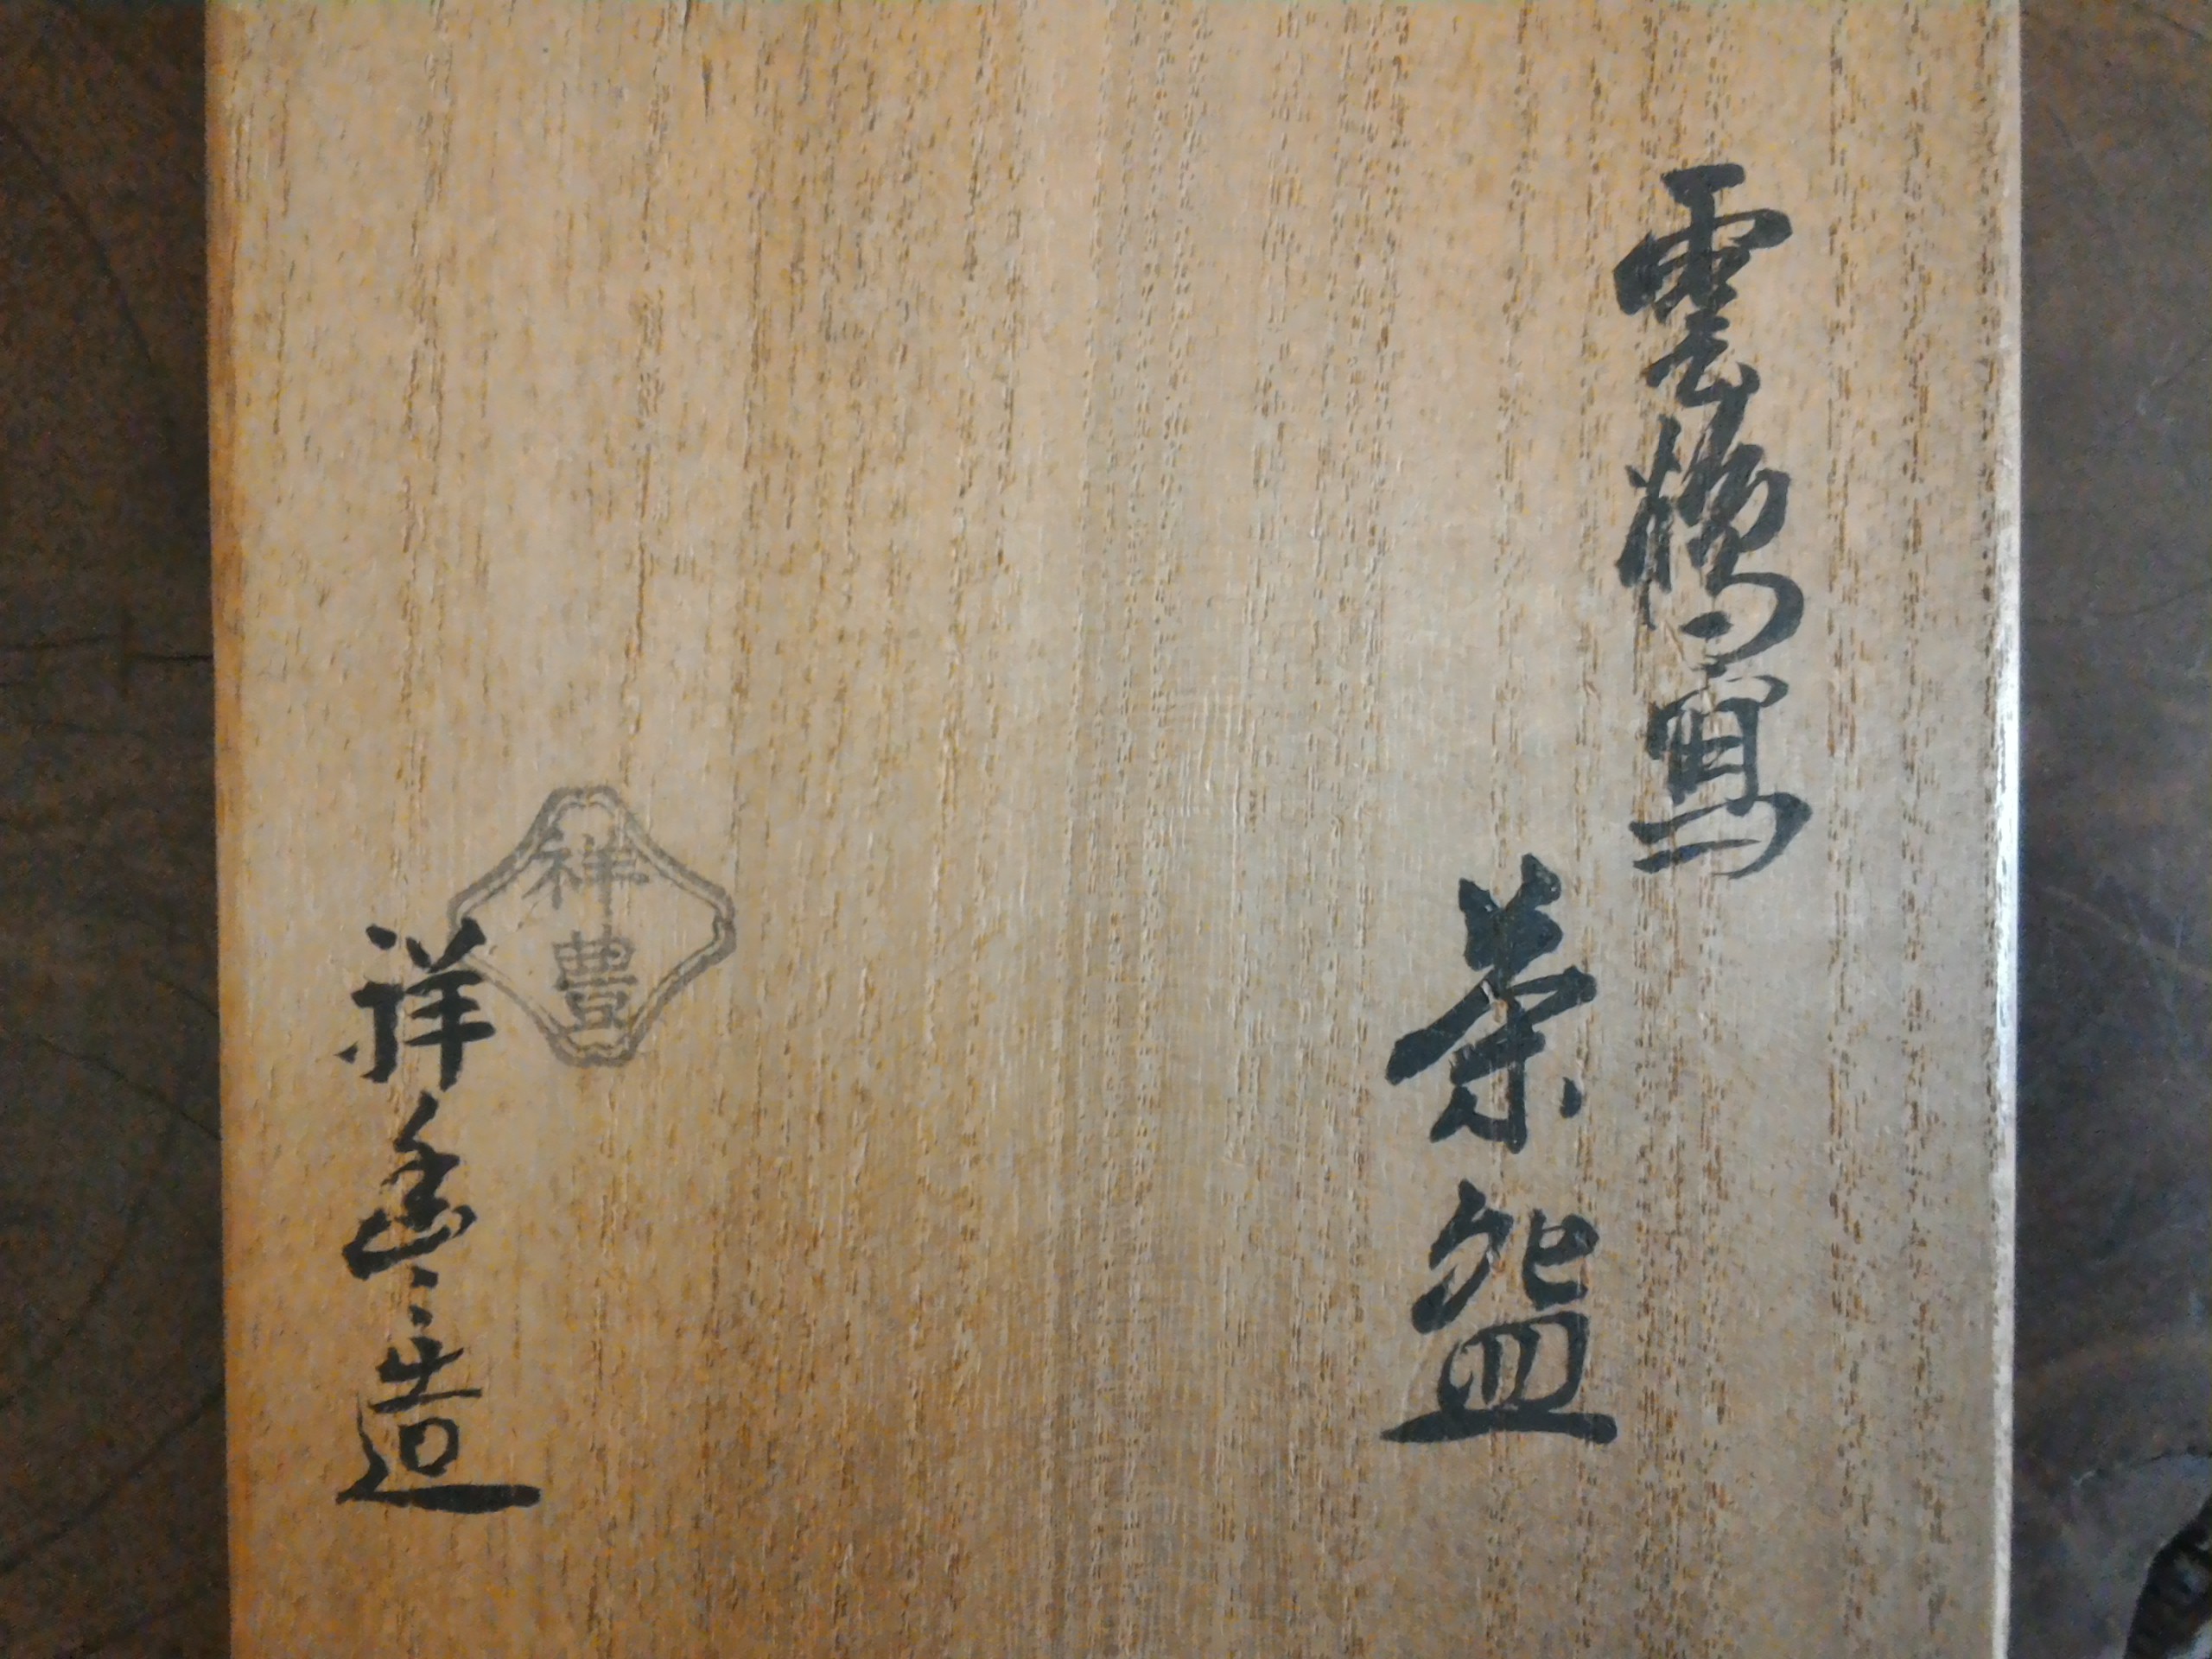 雲鶴寫
茶盌
祥豊
祥豊造